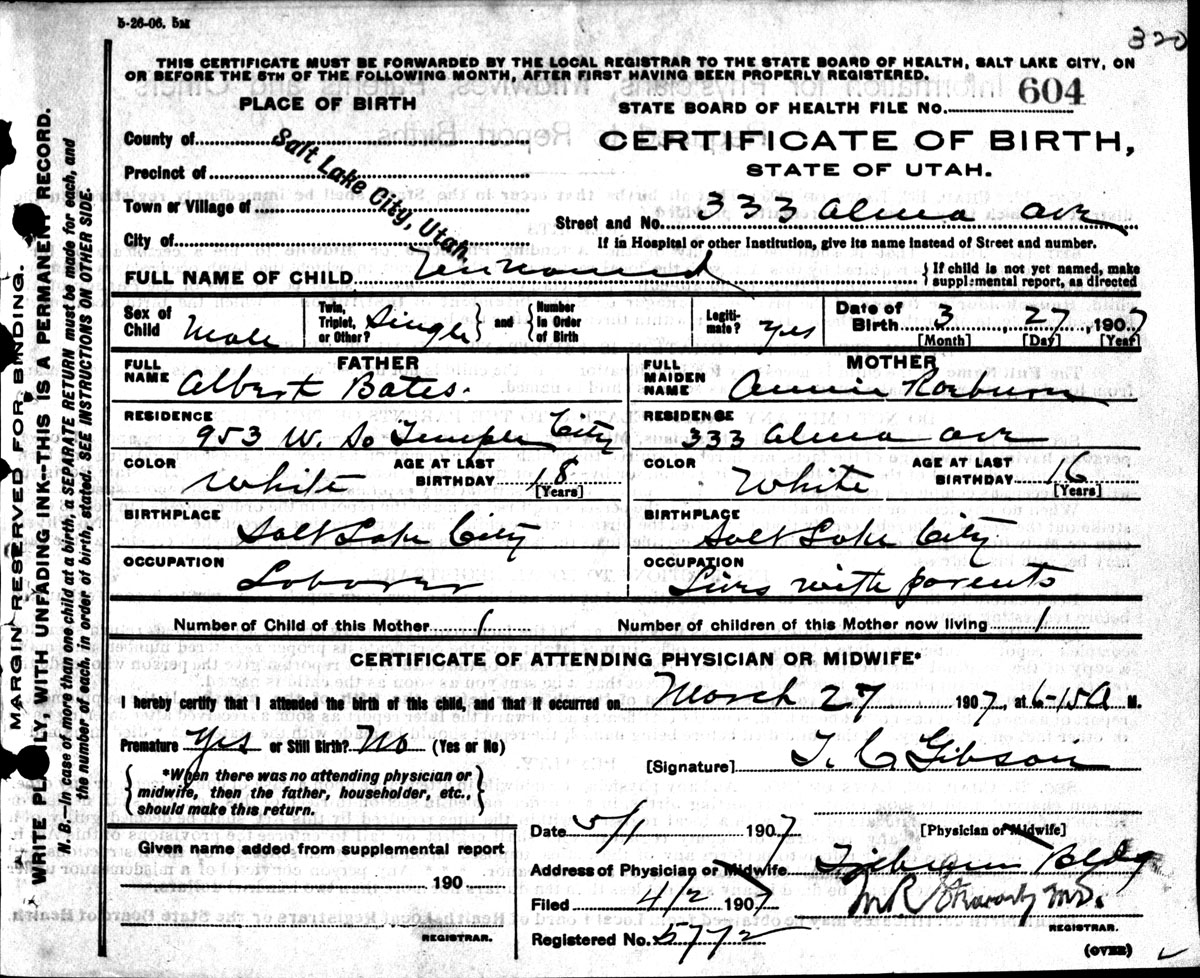 5-26-06. 5M
320
THIS CERTIFICATE MUST BE FORWARDED BY THE LOCAL REGISTRAR TO THE STATE BOARD OF HEALTH, SALT LAKE CITY, ON
OR BEFORE THE 5TH OF THE FOLLOWING MONTH, AFTER FIRST HAVING BEEN PROPERLY REGISTERED.
PLACE OF BIRTH
STATE BOARD OF HEALTH FILE No. 604
CERTIFICATE OF BIRTH,
STATE OF UTAH.
County of
Precinct of
Town or Village of
City of
Salt Lake City, Utah.
Street and No. 333 Alma Ave
If in Hospital or other Institution, give its name instead of Street and number.
FULL NAME OF CHILD Unnamed
If child is not yet named, make
supplemental report, as directed
Sex of Child Male
Twin, Triplet, or Other? Single and Number In Order of Birth
Legitimate? Yes
Date of Birth 3, 27, 1907
[Month] [Day] [Year]
FATHER
FULL NAME Albert Bates.
RESIDENCE 953 W. So Temple City
COLOR White
AGE AT LAST BIRTHDAY 18
[Years]
BIRTHPLACE Salt Lake City
OCCUPATION Laborer
MOTHER
FULL MAIDEN NAME Annie
RESIDENCE 333 Alma Ave
COLOR White
AGE AT LAST BIRTHDAY 16
[Years]
BIRTHPLACE Salt Lake City
OCCUPATION Lives with parents
Number of Child of this Mother 1
Number of children of this Mother now living 1
CERTIFICATE OF ATTENDING PHYSICIAN OR MIDWIFE*
I hereby certify that I attended the birth of this child, and that it occurred on March 27 1907, at 6-15 A M.
Premature Yes or Still Birth? No (Yes or No)
*When there was no attending physician or
midwife, then the father, householder, etc.,
should make this return.
[Signature] T. C. Gibson
[Physician or Midwife]
Given name added from supplemental report
190
REGISTRAR.
Date 5/1 1907
Address of Physician or Midwife Bldg
Filed 4/2 1907
M.D.
REGISTRAR.
Registered No. 5772
(OVER)
MARGIN RESERVED FOR BINDING.
WRITE PLAINLY, WITH UNFADING INK—THIS IS A PERMANENT RECORD.
N. B.—In case of more than one child at a birth, a SEPARATE RETURN must be made for each, and
the number of each, in order of birth, stated. SEE INSTRUCTIONS ON OTHER SIDE.